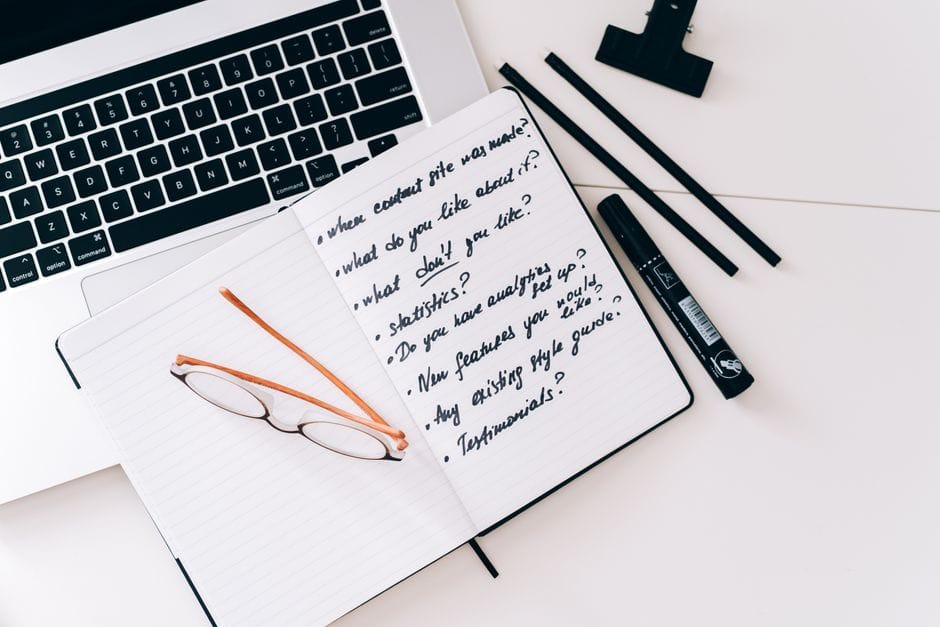 delete
2 3 4 5 6 7 8 9 0
Q W E R T Y U I O P
S D F G H J K L
Z X C V B N M shift
control option command command option
• when content site was made?
• what do you like about it?
• what don't you like?
• statistics?
• Do you have analytics set up?
• New features you would like?
• Any existing style guide?
• Testimonials?